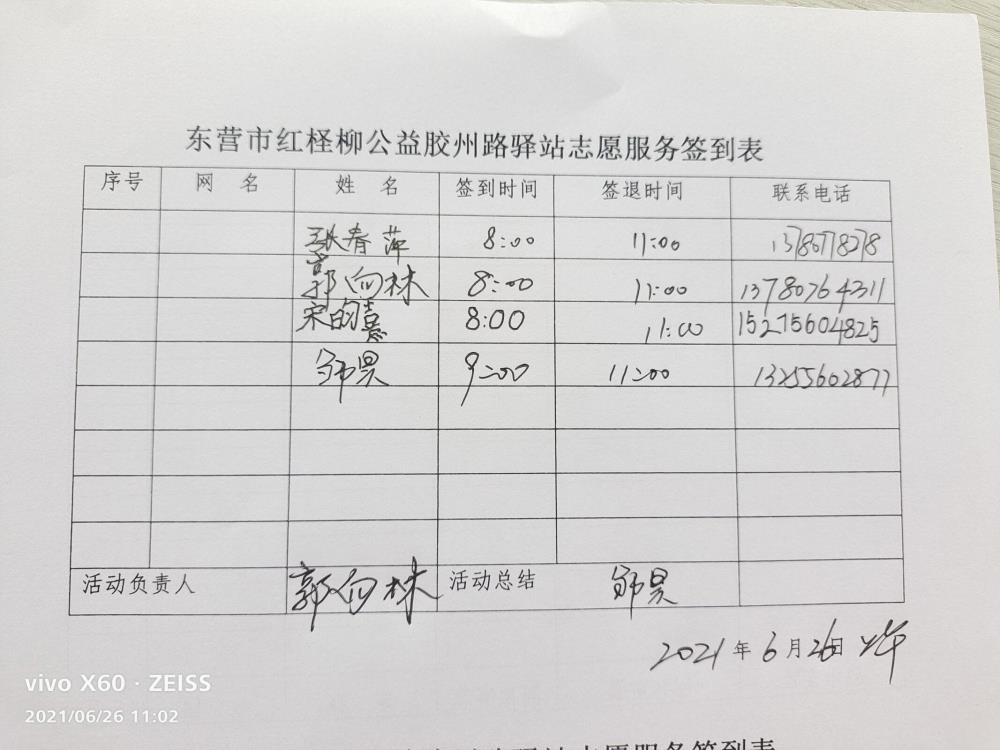 东营市红柽柳公益胶州路驿站志愿服务签到表
序号 网 名 姓 名 签到时间 签退时间 联系电话
张春萍 8:00 11:00
郭向林 8:00 11:00 13780764311
宋韵熹 8:00 11:00 15275604825
邹昊 9:00 11:00 13255602877
活动负责人 郭向林 活动总结 邹昊
2021年6月26日 上午
vivo X60 · ZEISS
2021/06/26 11:02
志愿服务签到表